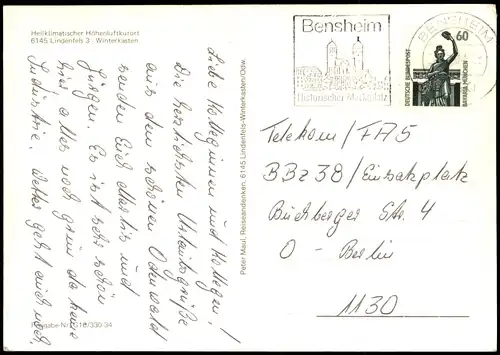 Heilklimatischer Höhenluftkurort
6145 Lindenfels 3 - Winterkasten
Liebe Kolleginnen und Kollegen!
Die herzlichsten Urlaubsgrüße
aus dem schönen Odenwald
senden Euch und
Jürgen. Es ist sehr schön
hier alles noch grün da keine
Industrie. Wetter geht auch noch.
Peter Maul, Reiseandenken, 6145 Lindenfels-Winterkasten/Odw.
Bensheim
Historischer Marktplatz
BENSHEIM
60
DEUTSCHE BUNDESPOST
BAVARIA MÜNCHEN
Telekom / FA5
BBz 38 / Einsatzplatz
Buchberger Str. 4
O - Berlin
1130